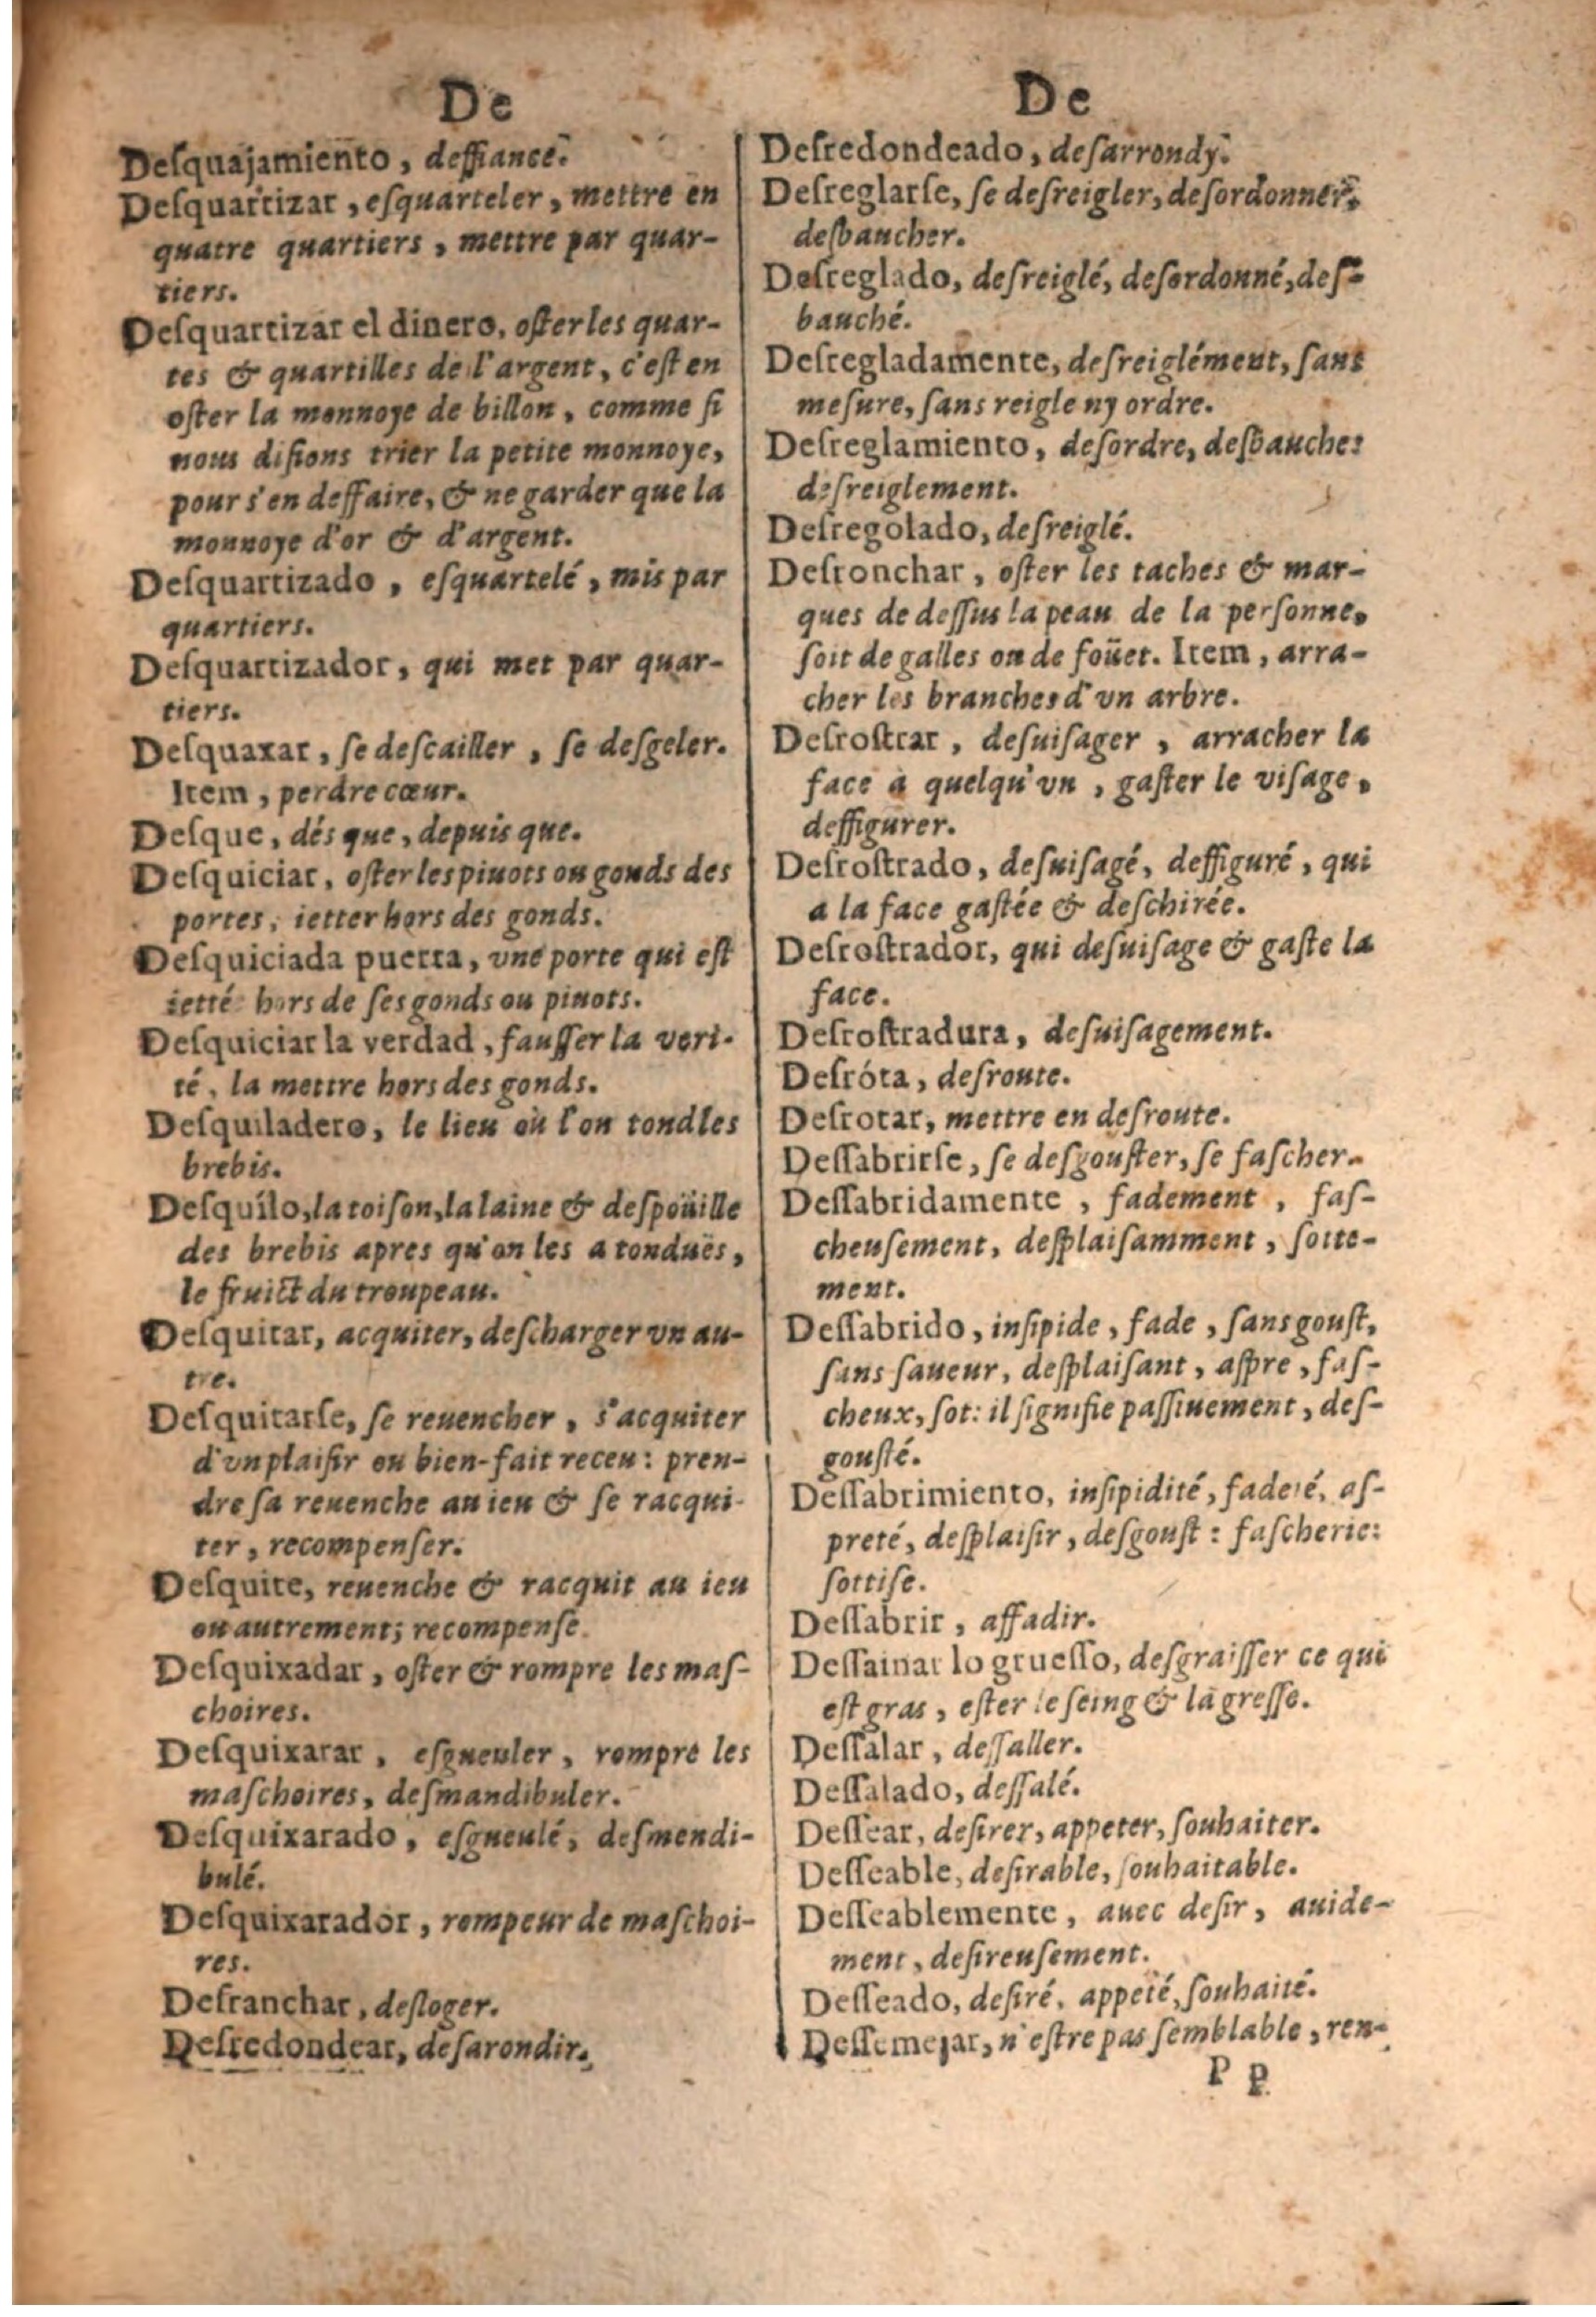 De
Deſquajamiento, deffiance.
Deſquartizar, eſquarteler, mettre en
quatre quartiers, mettre par quar-
tiers.
Deſquartizar el dinero, oſter les quar-
tes & quartilles de l'argent, c'eſt en
oſter la monnoye de billon, comme ſi
nous diſions trier la petite monnoye,
pour s'en deffaire, & ne garder que la
monnoye d'or & d'argent.
Deſquartizado, eſquartelé, mis par
quartiers.
Deſquartizador, qui met par quar-
tiers.
Deſquaxar, ſe deſcailler, ſe deſgeler.
Item, perdre cœur.
Deſque, dés que, depuis que.
Deſquiciar, oſter les piuots ou gonds des
portes, ietter hors des gonds.
Deſquiciada puerta, vne porte qui eſt
iettée hors de ſes gonds ou piuots.
Deſquiciar la verdad, fauſſer la veri-
té, la mettre hors des gonds.
Deſquiladero, le lieu où l'on tond les
brebis.
Deſquílo, la toiſon, la laine & deſpoüille
des brebis apres qu'on les a tonduës,
le fruict du troupeau.
Deſquitar, acquiter, deſcharger vn au-
tre.
Deſquitarſe, ſe reuencher, s'acquiter
d'vn plaiſir ou bien-fait receu: pren-
dre ſa reuenche au ieu & ſe racqui-
ter, recompenſer.
Deſquite, reuenche & racquit au ieu
ou autrement; recompenſe.
Deſquixadar, oſter & rompre les maſ-
choires.
Deſquixarar, eſgueuler, rompre les
maſchoires, deſmandibuler.
Deſquixarado, eſgueulé, deſmendi-
bulé.
Deſquixarador, rompeur de maſchoi-
res.
Deſranchar, deſloger.
Deſredondear, deſarondir.
De
Deſredondeado, deſarrondy.
Deſreglarſe, ſe deſreigler, deſordonner,
deſbaucher.
Deſreglado, deſreiglé, deſordonné, deſ-
bauché.
Deſregladamente, deſreiglément, ſans
meſure, ſans reigle ny ordre.
Deſreglamiento, deſordre, deſbauche:
deſreiglement.
Deſregolado, deſreiglé.
Deſronchar, oſter les taches & mar-
ques de deſſus la peau de la perſonne,
ſoit de galles ou de foüet. Item, arra-
cher les branches d'vn arbre.
Deſroſtrar, deſuiſager, arracher la
face à quelqu'vn, gaſter le viſage,
deffigurer.
Deſroſtrado, deſuiſagé, deffiguré, qui
a la face gaſtée & deſchirée.
Deſroſtrador, qui deſuiſage & gaſte la
face.
Deſroſtradura, deſuiſagement.
Deſróta, deſroute.
Deſrotar, mettre en deſroute.
Deſſabrirſe, ſe deſgouſter, ſe faſcher.
Deſſabridamente, fadement, faſ-
cheuſement, deſplaiſamment, ſotte-
ment.
Deſſabrido, inſipide, fade, ſans gouſt,
ſans ſaueur, deſplaiſant, aſpre, faſ-
cheux, ſot: il ſignifie paſſiuement, deſ-
gouſté.
Deſſabrimiento, inſipidité, fadeté, aſ-
preté, deſplaiſir, deſgouſt: faſcherie:
ſottiſe.
Deſſabrir, affadir.
Deſſainar lo grueſſo, deſgraiſſer ce qui
eſt gras, eſter le ſeing & la greſſe.
Deſſalar, deſſaller.
Deſſalado, deſſalé.
Deſſear, deſirer, appeter, ſouhaiter.
Deſſeable, deſirable, ſouhaitable.
Deſſeablemente, auec deſir, auide-
ment, deſireuſement.
Deſſeado, deſiré, appeté, ſouhaité.
Deſſemejar, n'eſtre pas ſemblable, ren-
P p